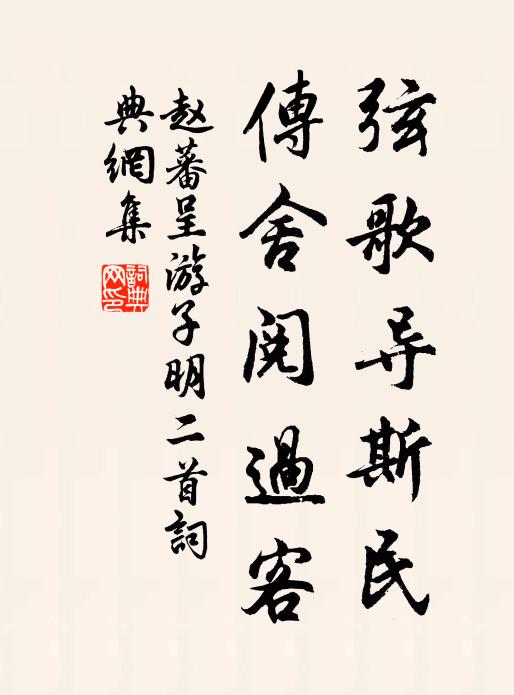 弦歌导斯民
傳舍閱過客
赵蕃呈游子明二首詞
典網集
詞典
网印